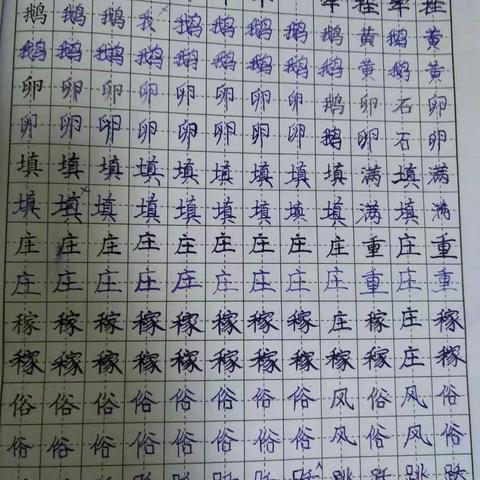 鹅鹅鹅我鹅鹅鹅鹅鹅黄鹅黄
鹅鹅鹅鹅鹅鹅鹅鹅鹅黄鹅黄
卵卵卵卵卵卵卵卵鹅卵石卵
卵卵卵卵卵卵卵卵鹅卵石卵
填填填填填填填填填满填满
填填填填填填填填填满填满
庄庄庄庄庄庄庄庄庄重庄重
庄庄庄庄庄庄庄庄庄重庄重
稼稼稼稼稼稼稼稼庄稼庄稼
稼稼稼稼稼稼稼稼稼稼庄稼
俗俗俗俗俗俗俗俗风俗风俗
俗俗俗俗俗俗俗俗风俗风俗